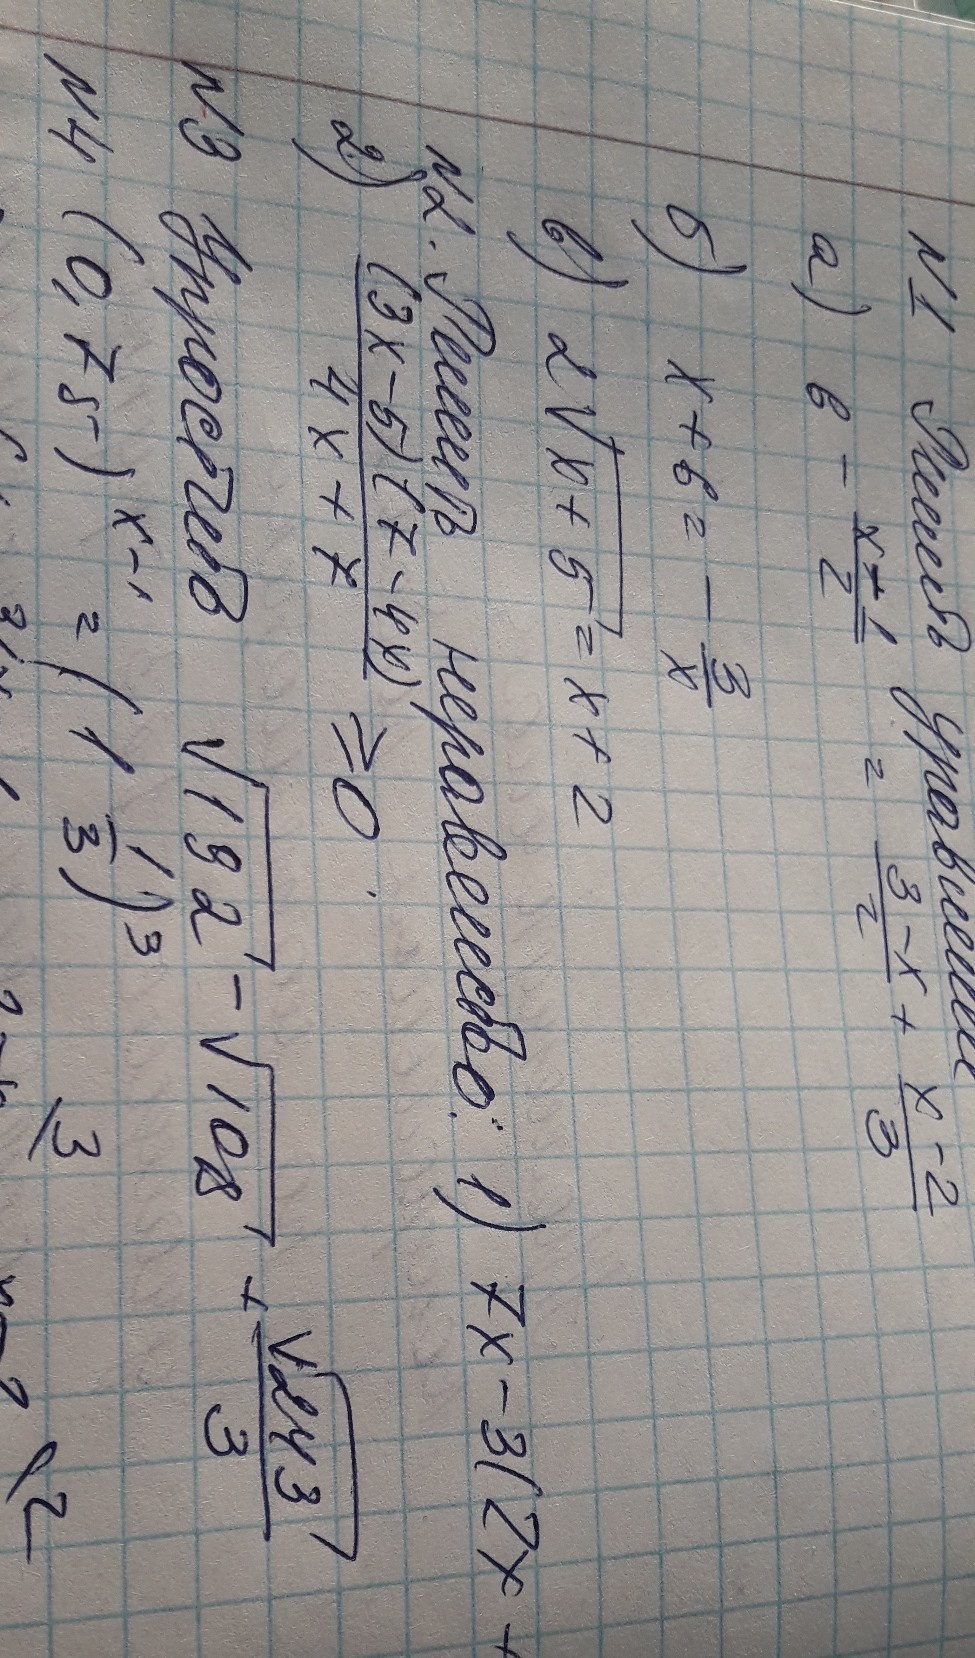 N1 Решить уравнения
а) 6 - \frac{x+1}{2} = \frac{3-x}{2} + \frac{x-2}{3}
б) x+6 = -\frac{3}{x}
в) 2\sqrt{x+5} = x+2
N2. Решить неравенство: 1) 7x-3(2x+
2) \frac{(3x-5)(7-4x)}{4x+7} ≥ 0.
N3 Упростить \sqrt{192} - \sqrt{108} + \frac{\sqrt{243}}{3}
N4 (0,75)^{x-1} = (1\frac{1}{3})^3